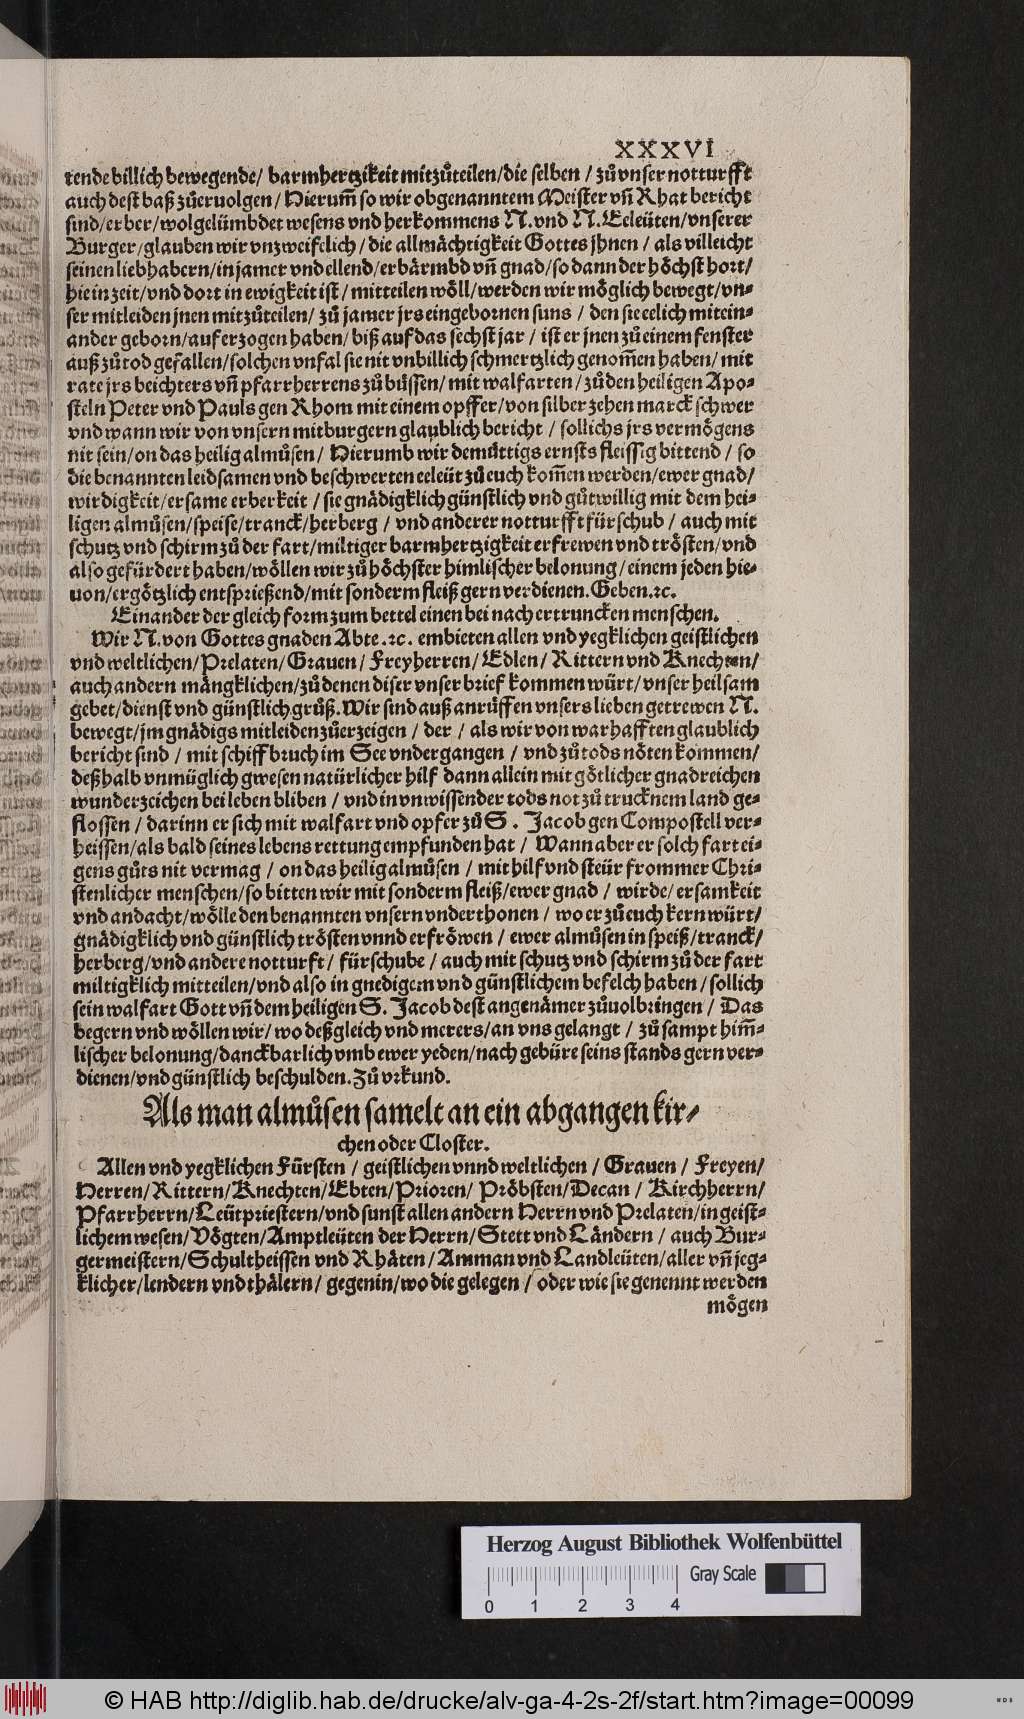 XXXVI
tende billich bewegende/ barmhertzikeit mitzůteilen/die selben / zů vnser notturfft
auch dest baß zůeruolgen/ Hierum̃ so wir obgenanntem Meister vñ Rhat bericht
sind/erber/wolgelümbdet wesens vnd herkommens N. vnd N. Eeleüten/vnserer
Burger/glauben wir vnzweifelich/die allmächtigkeit Gottes jhnen / als villeicht
seinen liebhabern/in jamer vnd ellend/erbärmbd vñ gnad/so dann der höchst hort/
hie in zeit/vnd dort in ewigkeit ist / mitteilen wöll/werden wir möglich bewegt/vn⸗
ser mitleiden jnen mitzůteilen/ zů jamer jrs eingebornen suns / den sie eelich mitein⸗
ander geborn/auferzogen haben/ biß auf das sechst jar / ist er jnen zů einem fenster
auß zů tod gefallen/solchen vnfal sie nit vnbillich schmertzlich genom̃en haben/ mit
rate jrs beichters vñ pfarrherrens zů bůssen/ mit walfarten / zů den heiligen Apo⸗
steln Peter vnd Pauls gen Rhom mit einem opffer/von silber zehen marck schwer
vnd wann wir von vnsern mitburgern glaublich bericht / sollichs jrs vermögens
nit sein/on das heilig almůsen/ Hierumb wir demüttigs ernsts fleissig bittend / so
die benannten leidsamen vnd beschwerten eeleüt zů euch kom̃en werden/ewer gnad/
wirdigkeit/ersame erberkeit / sie gnädigklich günstlich vnd gůtwillig mit dem hei⸗
ligen almůsen/speise/tranck/herberg / vnd anderer notturfft fürschub / auch mit
schutz vnd schirm zů der fart/miltiger barmhertzigkeit erfrewen vnd trösten/vnd
also gefürdert haben/wöllen wir zů höchster himlischer belonung/einem jeden hie⸗
uon/ergötzlich entsprießend/mit sonderm fleiß gern verdienen. Geben.ꝛc.
Ein ander der gleich form zum bettel einen bei nach ertruncken menschen.
Wir N. von Gottes gnaden Abte.ꝛc. embieten allen vnd yegklichen geistlichen
vnd weltlichen/Prelaten/Grauen/ Freyherren/Edlen/ Rittern vnd Knechten/
auch andern mängklichen/zů denen diser vnser brief kommen würt/vnser heilsam
gebet/dienst vnd günstlich grůß. Wir sind auß anrůffen vnsers lieben getrewen N.
bewegt/jm gnädigs mitleiden zůerzeigen / der / als wir von warhafften glaublich
bericht sind / mit schiffbruch im See vndergangen / vnd zů tods nöten kommen/
deßhalb vnmüglich gwesen natürlicher hilf dann allein mit götlicher gnadreichen
wunderzeichen bei leben bliben / vnd in vnwissender tods not zů trucknem land ge⸗
flossen / darinn er sich mit walfart vnd opfer zů S. Jacob gen Compostell ver⸗
heissen/als bald seines lebens rettung empfunden hat / Wann aber er solch fart ei⸗
gens gůts nit vermag / on das heilig almůsen / mit hilf vnd steür frommer Chri⸗
stenlicher menschen/so bitten wir mit sonderm fleiß/ewer gnad / wirde/ersamkeit
vnd andacht/wölle den benannten vnsern vnderthonen / wo er zů euch kern würt/
gnädigklich vnd günstlich trösten vnnd erfröwen / ewer almůsen in speiß/tranck/
herberg/vnd andere notturft/ fürschube / auch mit schutz vnd schirm zů der fart
miltigklich mitteilen/vnd also in gnedigem vnd günstlichem befelch haben/sollich
sein walfart Gott vñ dem heiligen S. Jacob dest angenämer zůuolbringen / Das
begern vnd wöllen wir/wo deßgleich vnd merers/an vns gelangt / zů sampt him̃⸗
lischer belonung/danckbarlich vmb ewer yeden/nach gebüre seins stands gern ver⸗
dienen/vnd günstlich beschulden. Zů vrkund.
Als man almůsen samelt an ein abgangen kir⸗
chen oder Closter.
Allen vnd yegklichen Fürsten / geistlichen vnnd weltlichen / Grauen / Freyen/
Herren/Rittern/Knechten/Ebten/Prioren/ Pröbsten/Decan / Kirchherrn/
Pfarrherrn/Leütpriestern/vnd sunst allen andern Herrn vnd Prelaten/in geist⸗
lichem wesen/Vögten/Amptleüten der Herrn/Stett vnd Ländern / auch Bur⸗
germeistern/Schultheissen vnd Rhäten/Amman vnd Landleüten/aller vñ jeg⸗
klicher/lendern vnd thälern/ gegenin/wo die gelegen / oder wie sie genennt werden
mögen
Herzog August Bibliothek Wolfenbüttel
Gray Scale
0 1 2 3 4
© HAB http://diglib.hab.de/drucke/alv-ga-4-2s-2f/start.htm?image=00099